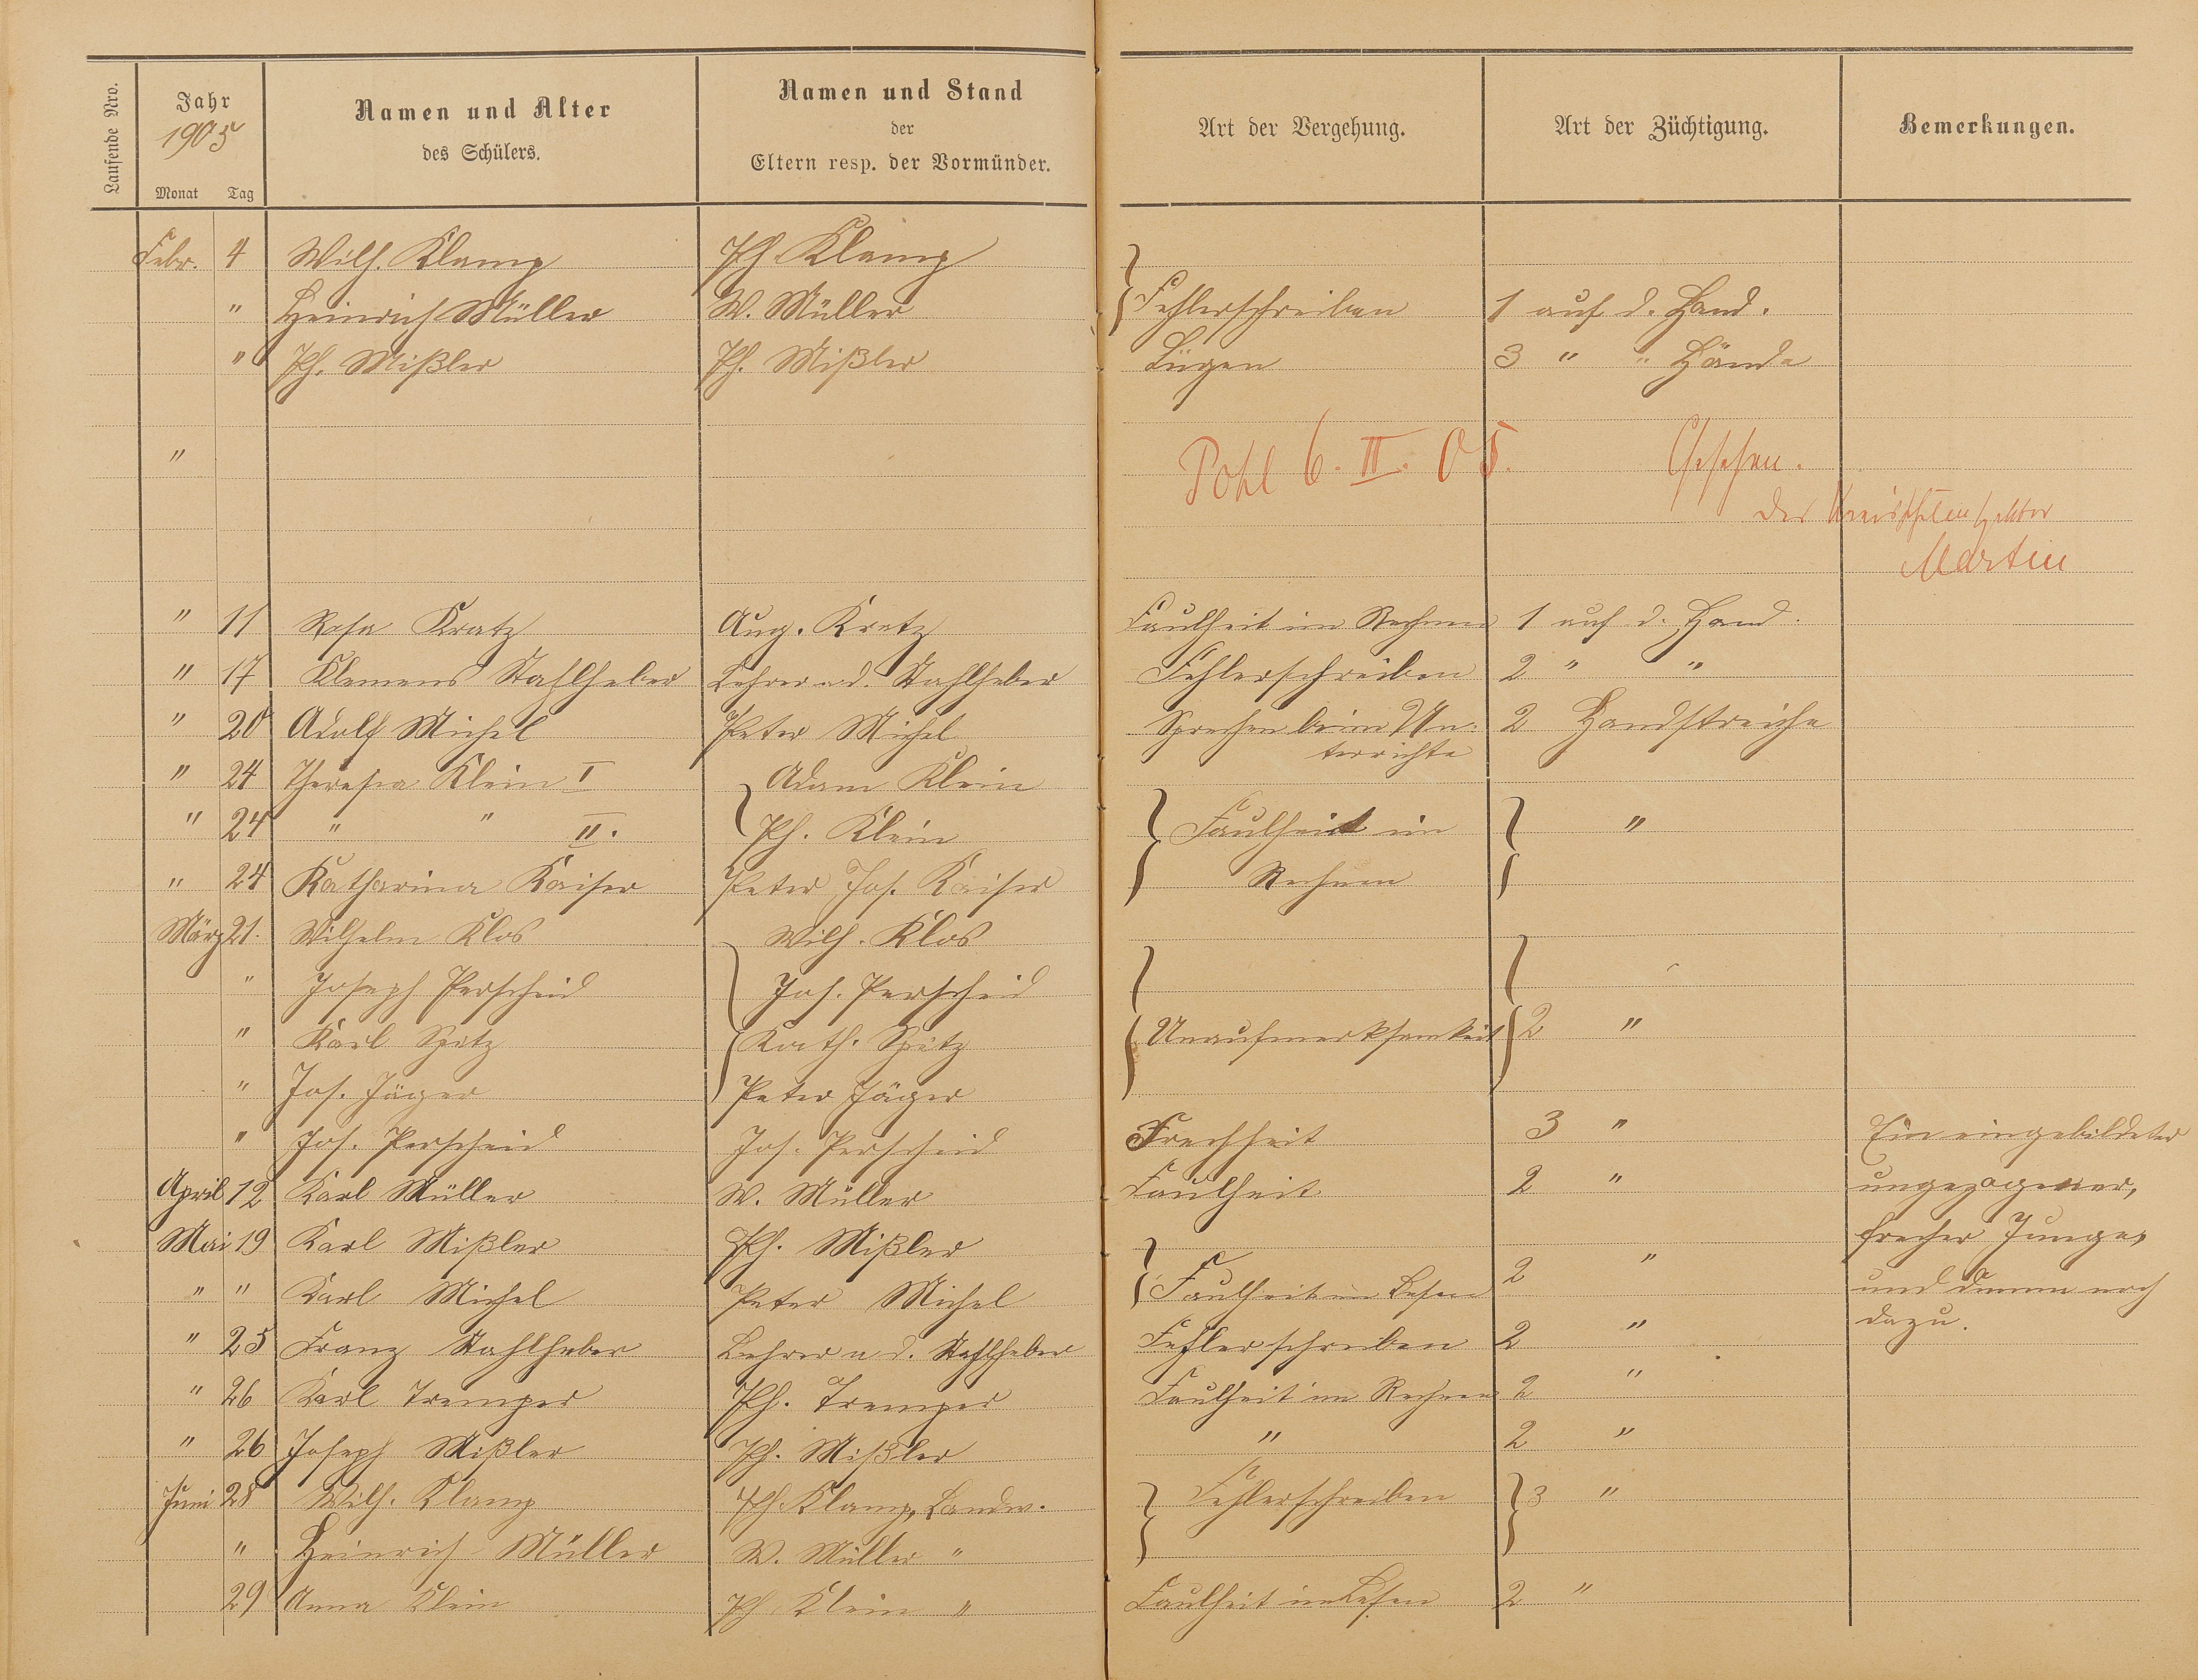 Laufende Nro.
Jahr
1905
Monat Tag
Namen und Alter
des Schülers.
Namen und Stand
der
Eltern resp. der Vormünder.
Art der Vergehung.
Art der Züchtigung.
Bemerkungen.
Febr. 4 Wilh. Klamp Ph. Klamp
" Heinrich Müller W. Müller Fehlerschreiben 1 auf d. Hand.
" Ph. Mißler Ph. Mißler Lügen 3 " " Hände
" Pohl 6. II. 05. Gesehen.
Der Kreisschulinspektor
Martin
" 11 Rosa Kratz Aug. Kratz Faulheit im Rechnen 1 auf d. Hand.
" 17 Klemens Stahlheber Lehrer a. d. Stahlheber Fehlerschreiben 2 " "
" 20 Adolf Michel Peter Michel Sprechen beim Un- 2 Handstreiche
terrichte
" 24 Theresia Klein I Adam Klein
" 24 " " II. Ph. Klein Faulheit im "
" 24 Katharina Kaiser Peter Jos. Kaiser Rechnen
März 21. Wilhelm Klos Wilh. Klos
" Joseph Perscheid Jos. Perscheid
" Karl Spitz Kath. Spitz Unaufmerksamkeit 2 "
" Jos. Jäger Peter Jäger
" Jos. Perscheid Jos. Perscheid Frechheit 3 " Ein eingebildeter
April 12 Karl Müller W. Müller Faulheit 2 " ungezogener,
Mai 19 Karl Mißler Ph. Mißler frecher Junge,
" " Karl Michel Peter Michel Faulheit im Lesen 2 " und dumm noch
" 25 Franz Stahlheber Lehrer a. d. Stahlheber Fehlerschreiben 2 " dazu.
" 26 Karl Tremper Ph. Tremper Faulheit im Rechnen 2 "
" 26 Joseph Mißler Ph. Mißler " 2 "
Juni 28 Wilh. Klamp Ph. Klamp, Landw. Fehlerschreiben 3 "
" Heinrich Müller W. Müller "
29 Anna Klein Ph. Klein " Faulheit im Lesen 2 "